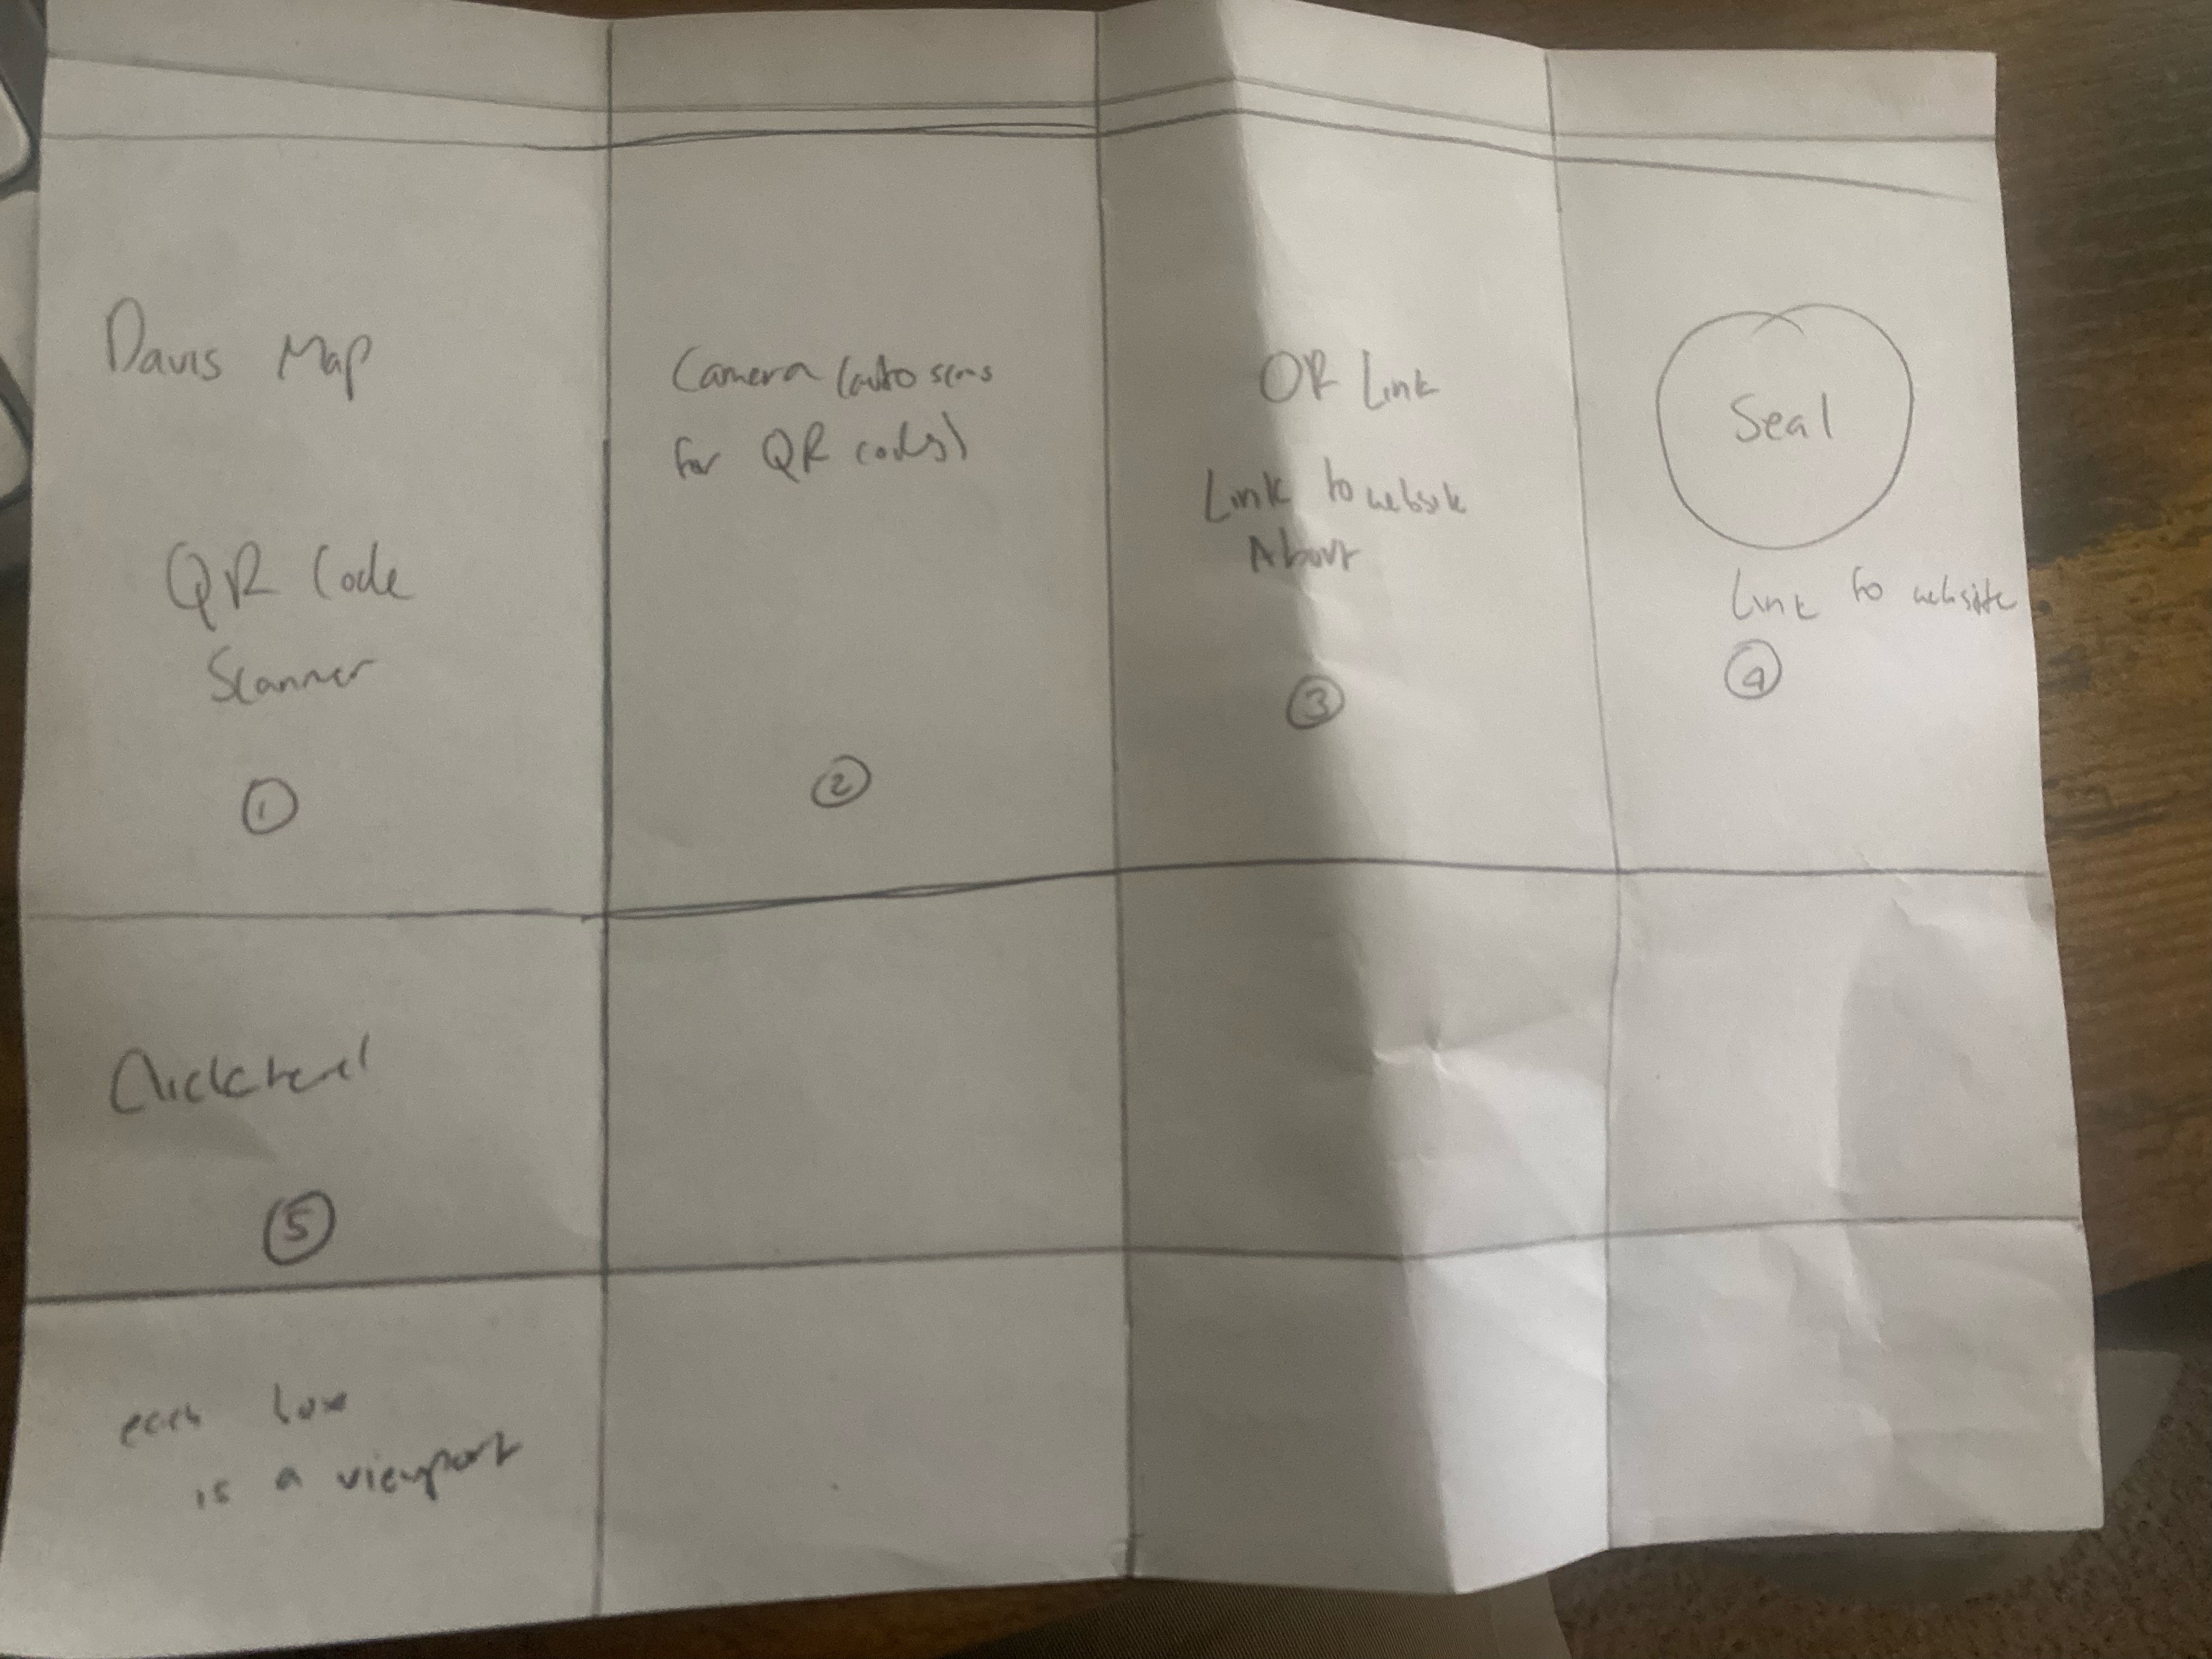 Davis Map
QR Code
Scanner
1
Camera (auto scans
for QR codes)
2
QR Link
Link to website
About
3
Seal
Link to website
4
5
each box
is a viewport